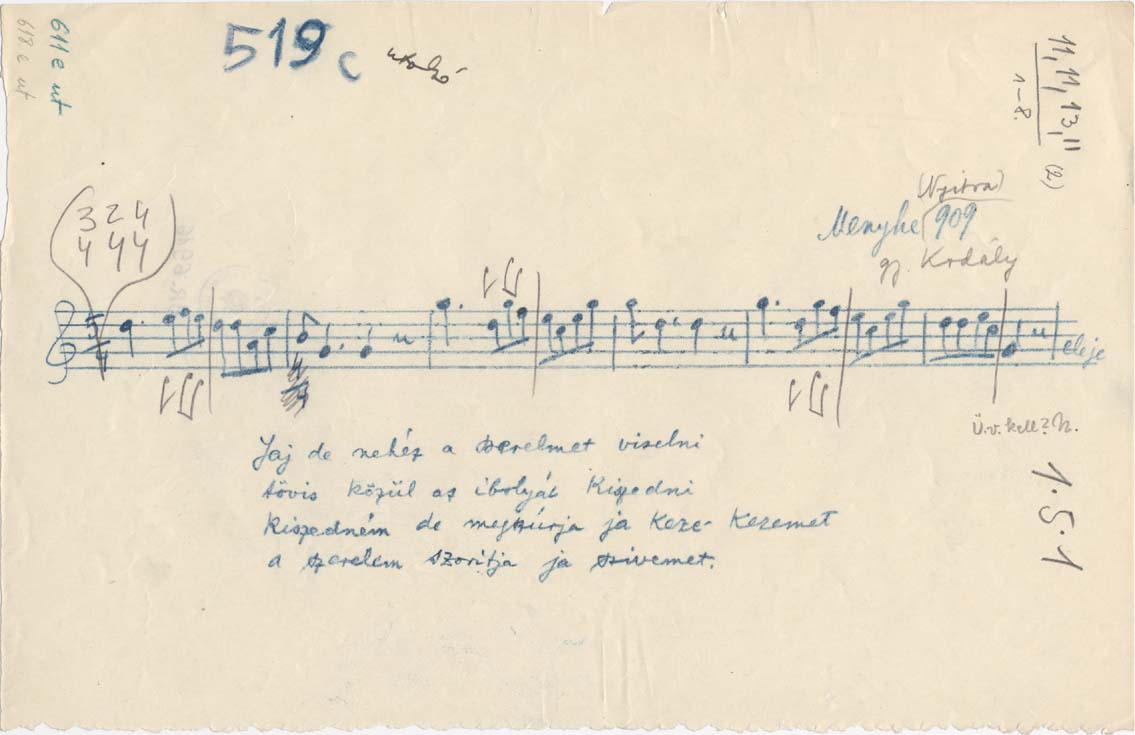 611 e ut
618 e ut
519 c utolsó
11, 11, 13, 11 (2)
1–8.
(Nyitra)
Menyhe 909
gy. Kodály
3 2 4
4 4 4
eleje
Ü.v. kell?
Jaj de nehéz a szerelmet viselni
tövis közül az ibolyát kiszedni
kiszedném de megszúrja ja keze- kezemet
a szerelem szorítja ja szivemet.
1.5.1